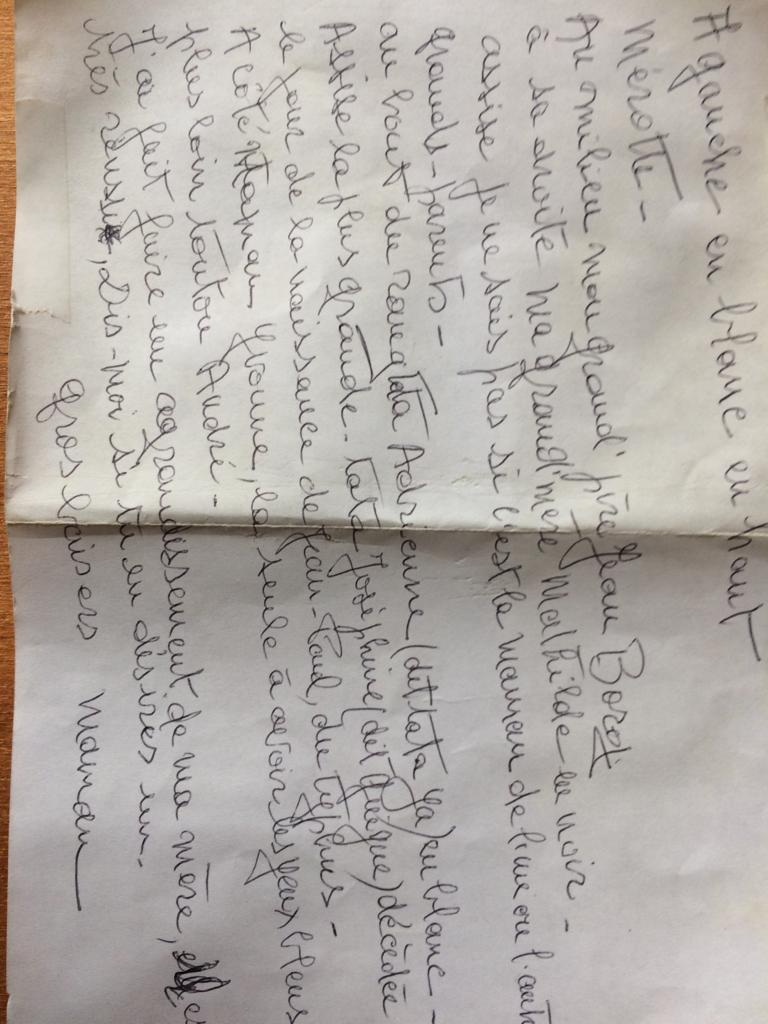 A gauche en blanc en haut
Mérotte -
Au milieu mon grand' père Jean Boret
à sa droite ma grand'mère Mathilde en noir -
assise je ne sais pas si c'est la maman de l'une ou l'aut
grands-parents -
au bout du rang tata Adrienne (dit tata Ya) en blanc -
Assise la plus grande - tata Joséphine (dit ) décédée
le jour de la naissance de Jean-Paul, du typhus -
A côté Maman Yvonne, la seule à avoir les yeux bleus
plus loin tonton André -
J'ai fait faire un agrandissement de ma mère,
très réussi, Dis-moi si tu en désires un.
gros baisers Maman